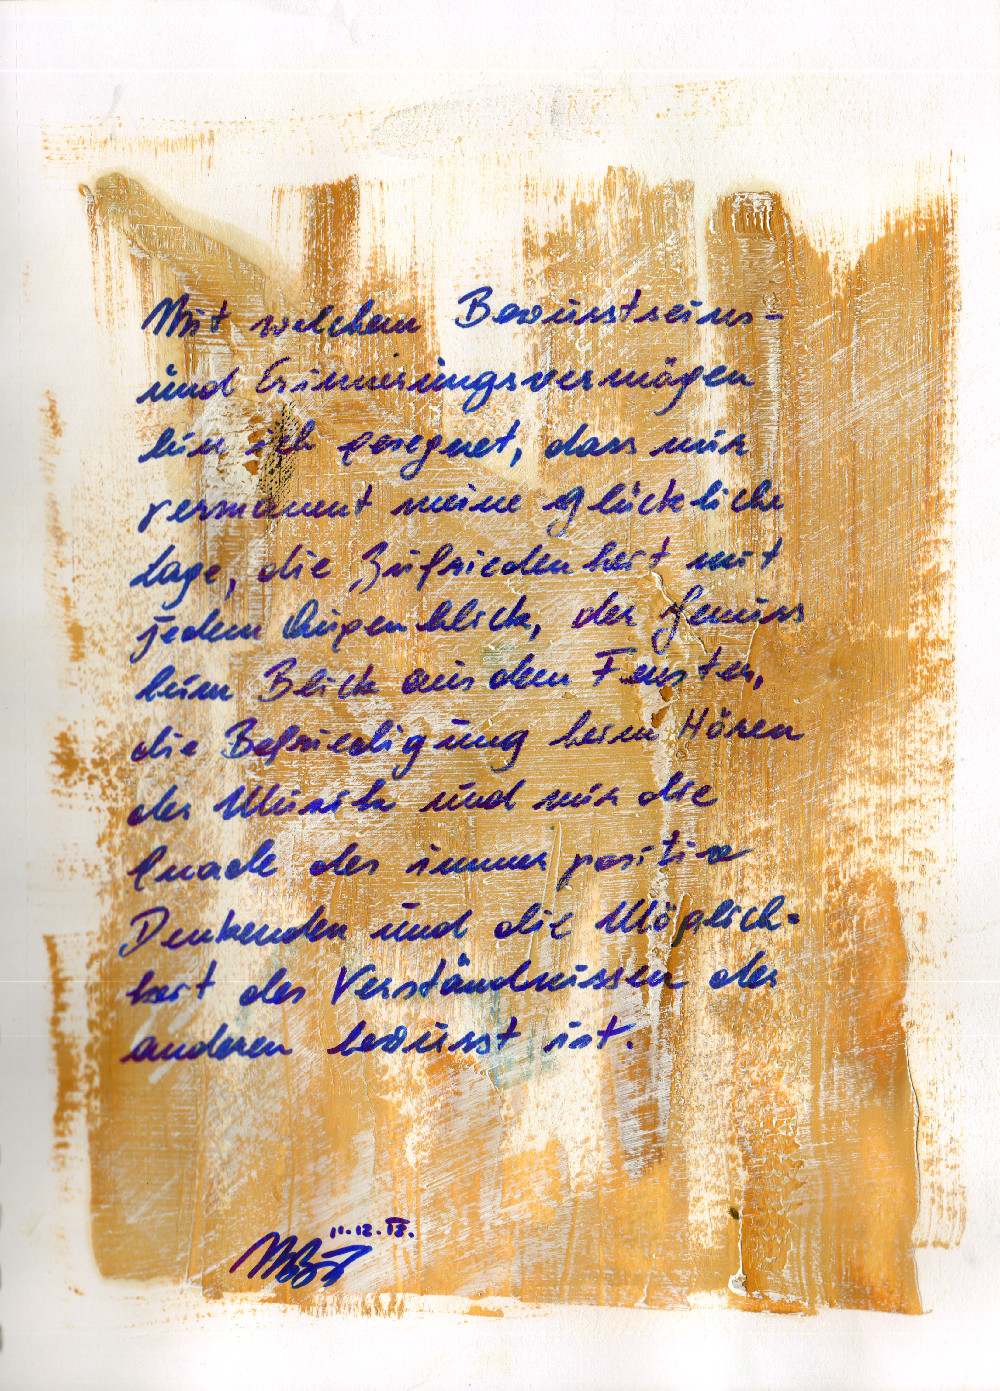 Mit welchem Bewusstseins-
und Erinnerungsvermögen
bin ich gesegnet, dass mir
permanent meine glückliche
Lage, die Zufriedenheit mit
jedem Augenblick, der Genuss
beim Blick aus dem Fenster,
die Befriedigung beim Hören
der Musik und mir die
Gnade des immer positiv
Denkenden und die Möglich-
keit des Verständnisses der
anderen bewusst ist.